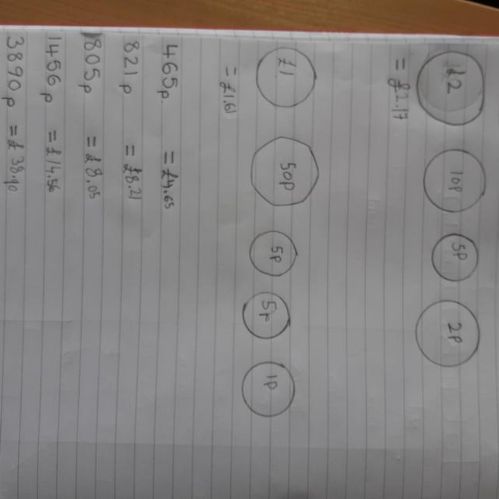 £2 10p 5p 2p
= £2.17
£1 50p 5p 5p 1p
= £1.61
465p = £4.65
821p = £8.21
805p = £8.05
1456p = £14.56
3890p = £38.90